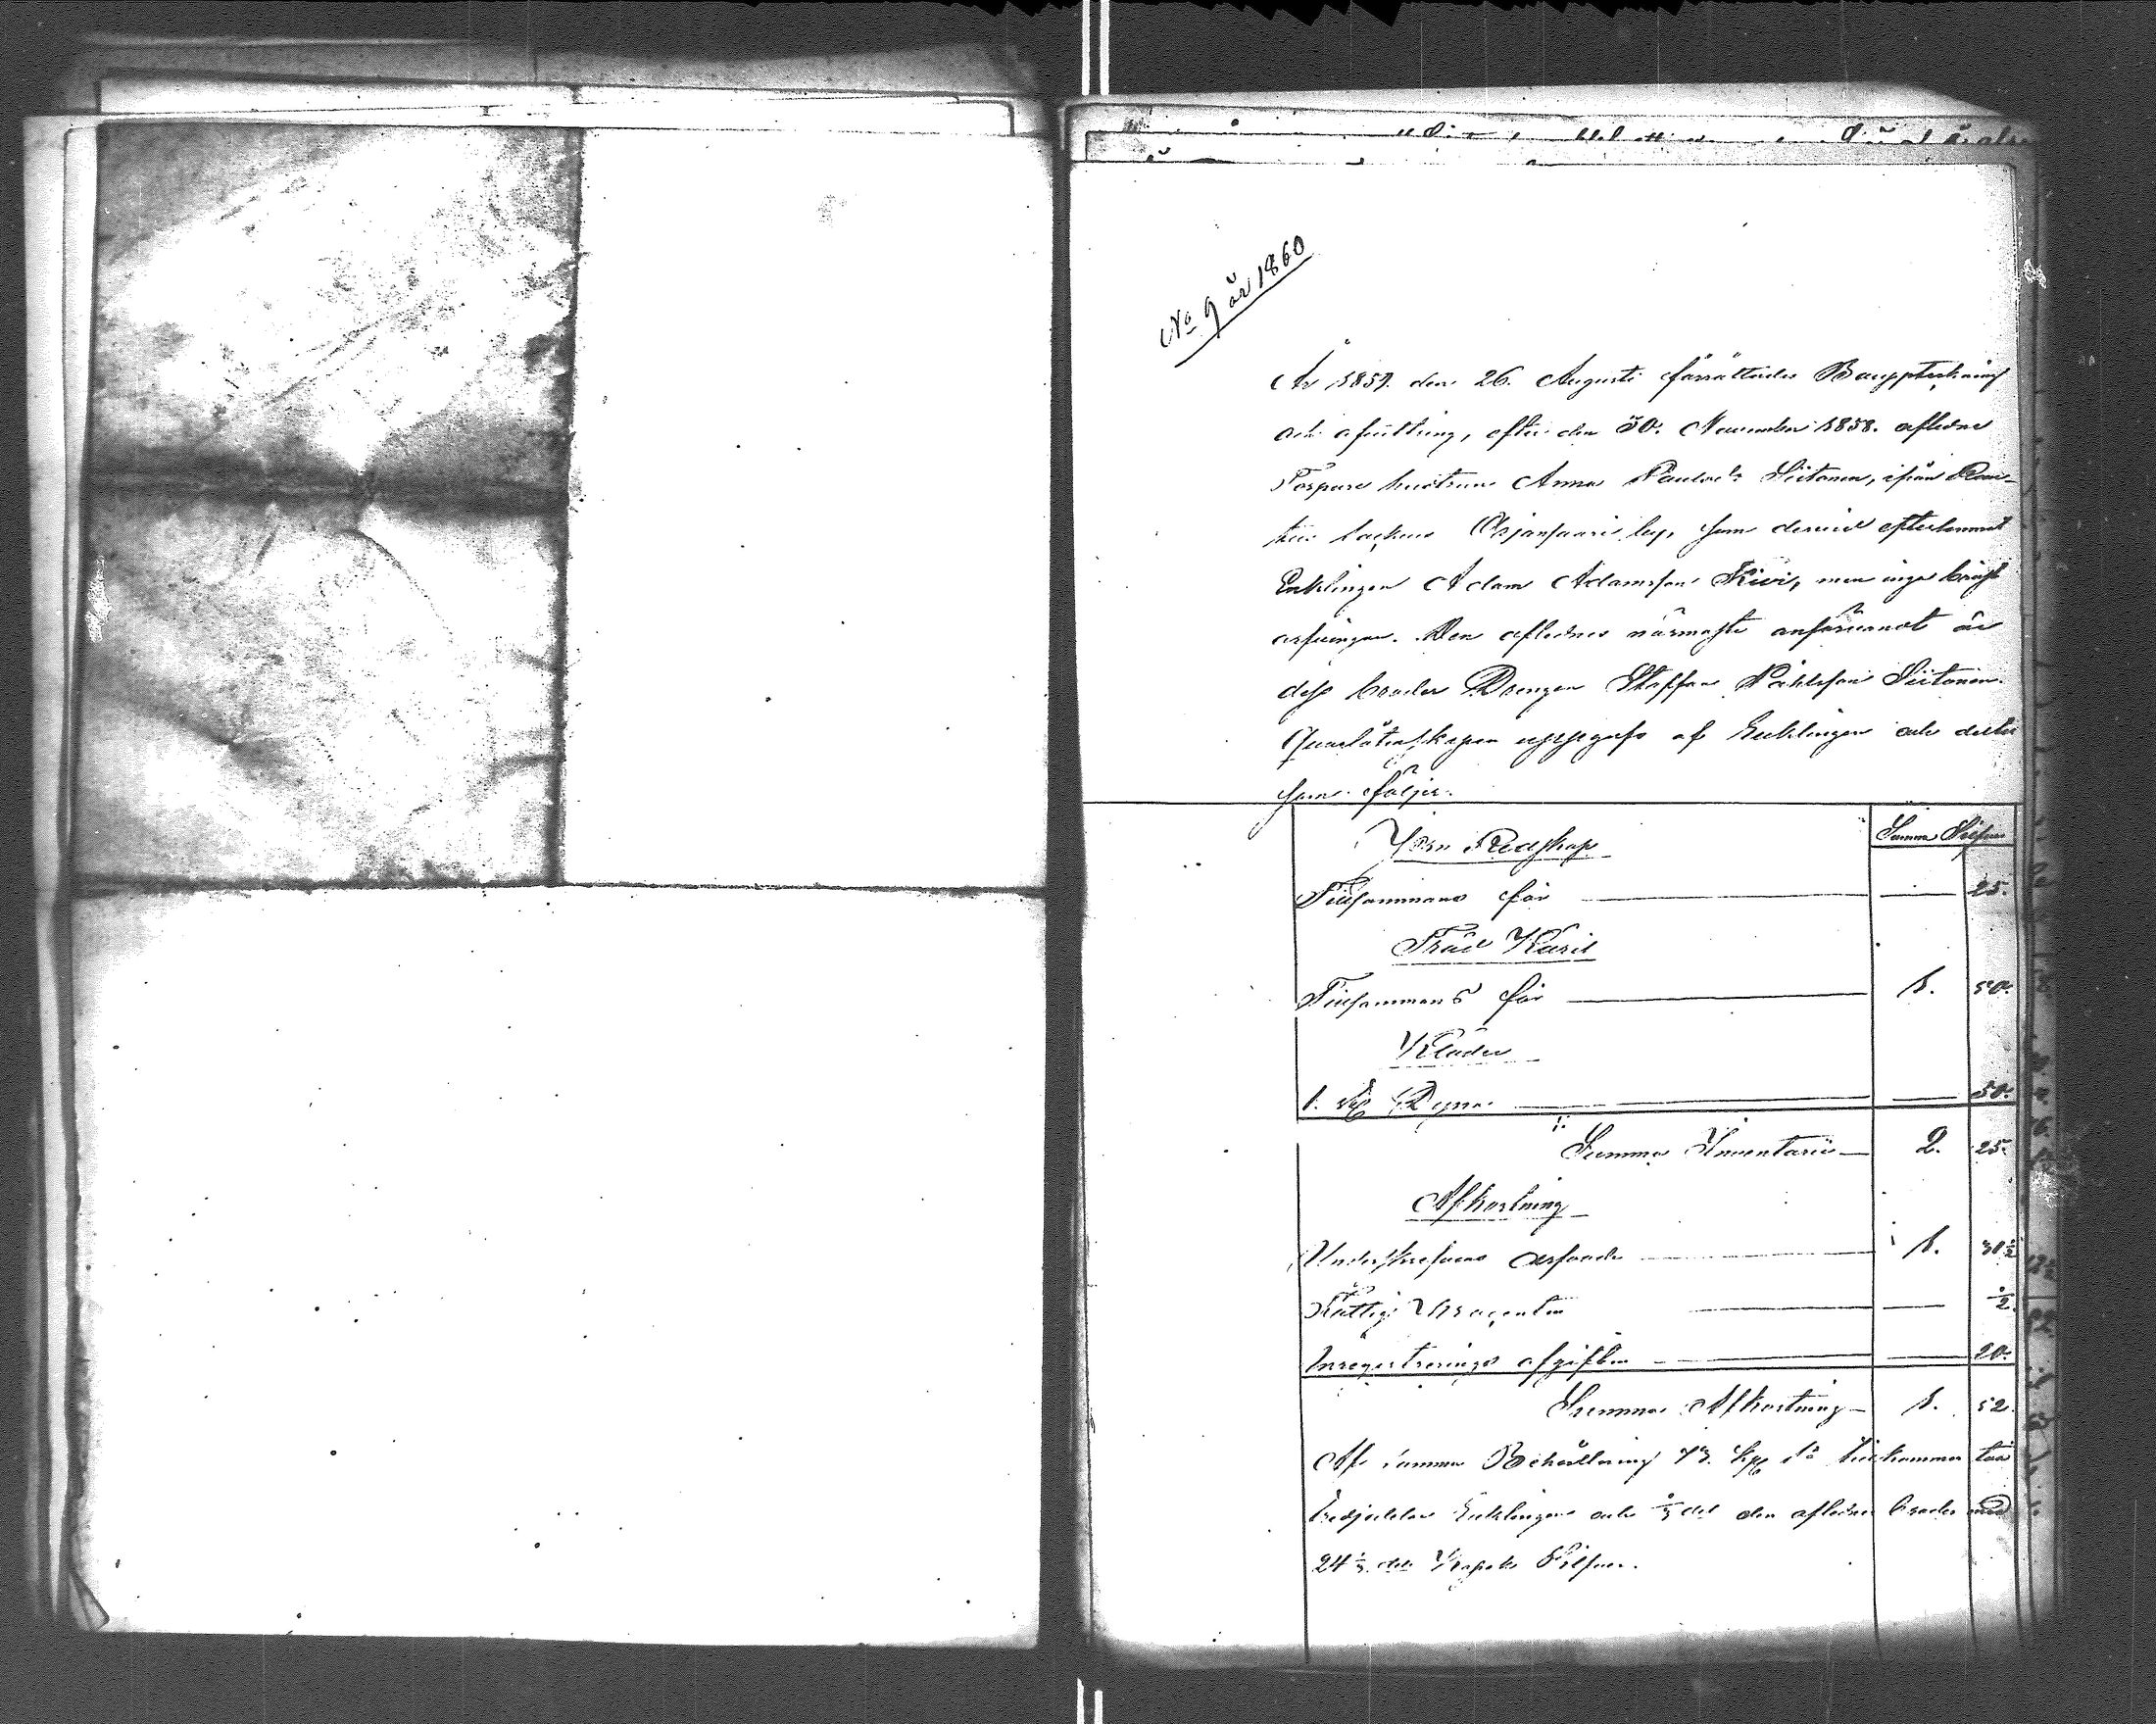 No 9 år 1860
År 1859. den 26. Augusti förrättades Bouppteckning
och afvittring, efter den 30. November 1858. aflednе
Torpare hustrun Anna Paulsdr Siitonen, ifrån
backens lup, som dervid efterlemnat
Enklingen Adam Adamsson Kivi, men inga bröst
arfvingar. Den aflednes närmaste anförvandt är
dess broder Drengen Staffan Påhlsson Siitonen.
Qvarlåtenskapen uppgafs af Enklingen och
som följer.
Summa Silfver
Jern Redskap
Tillsammans för 25.
Träd Käril
Tillsammans för 1. 50.
Kläder
1. st Dyna 50.
Summa Inventarii 2. 25.
Afkortning
Underskrefvens arfvode 1. 31 1/2
Fattig Procenten 1/2
Inregistrerings afgiften 20.
Summa Afkortning 1. 52.
Af summa Behållning 73. kop så tillkommer två
tredjedelar Enklingen och 1/3 del den aflednes broder med
24 1/3 dels Kopek Silfver.